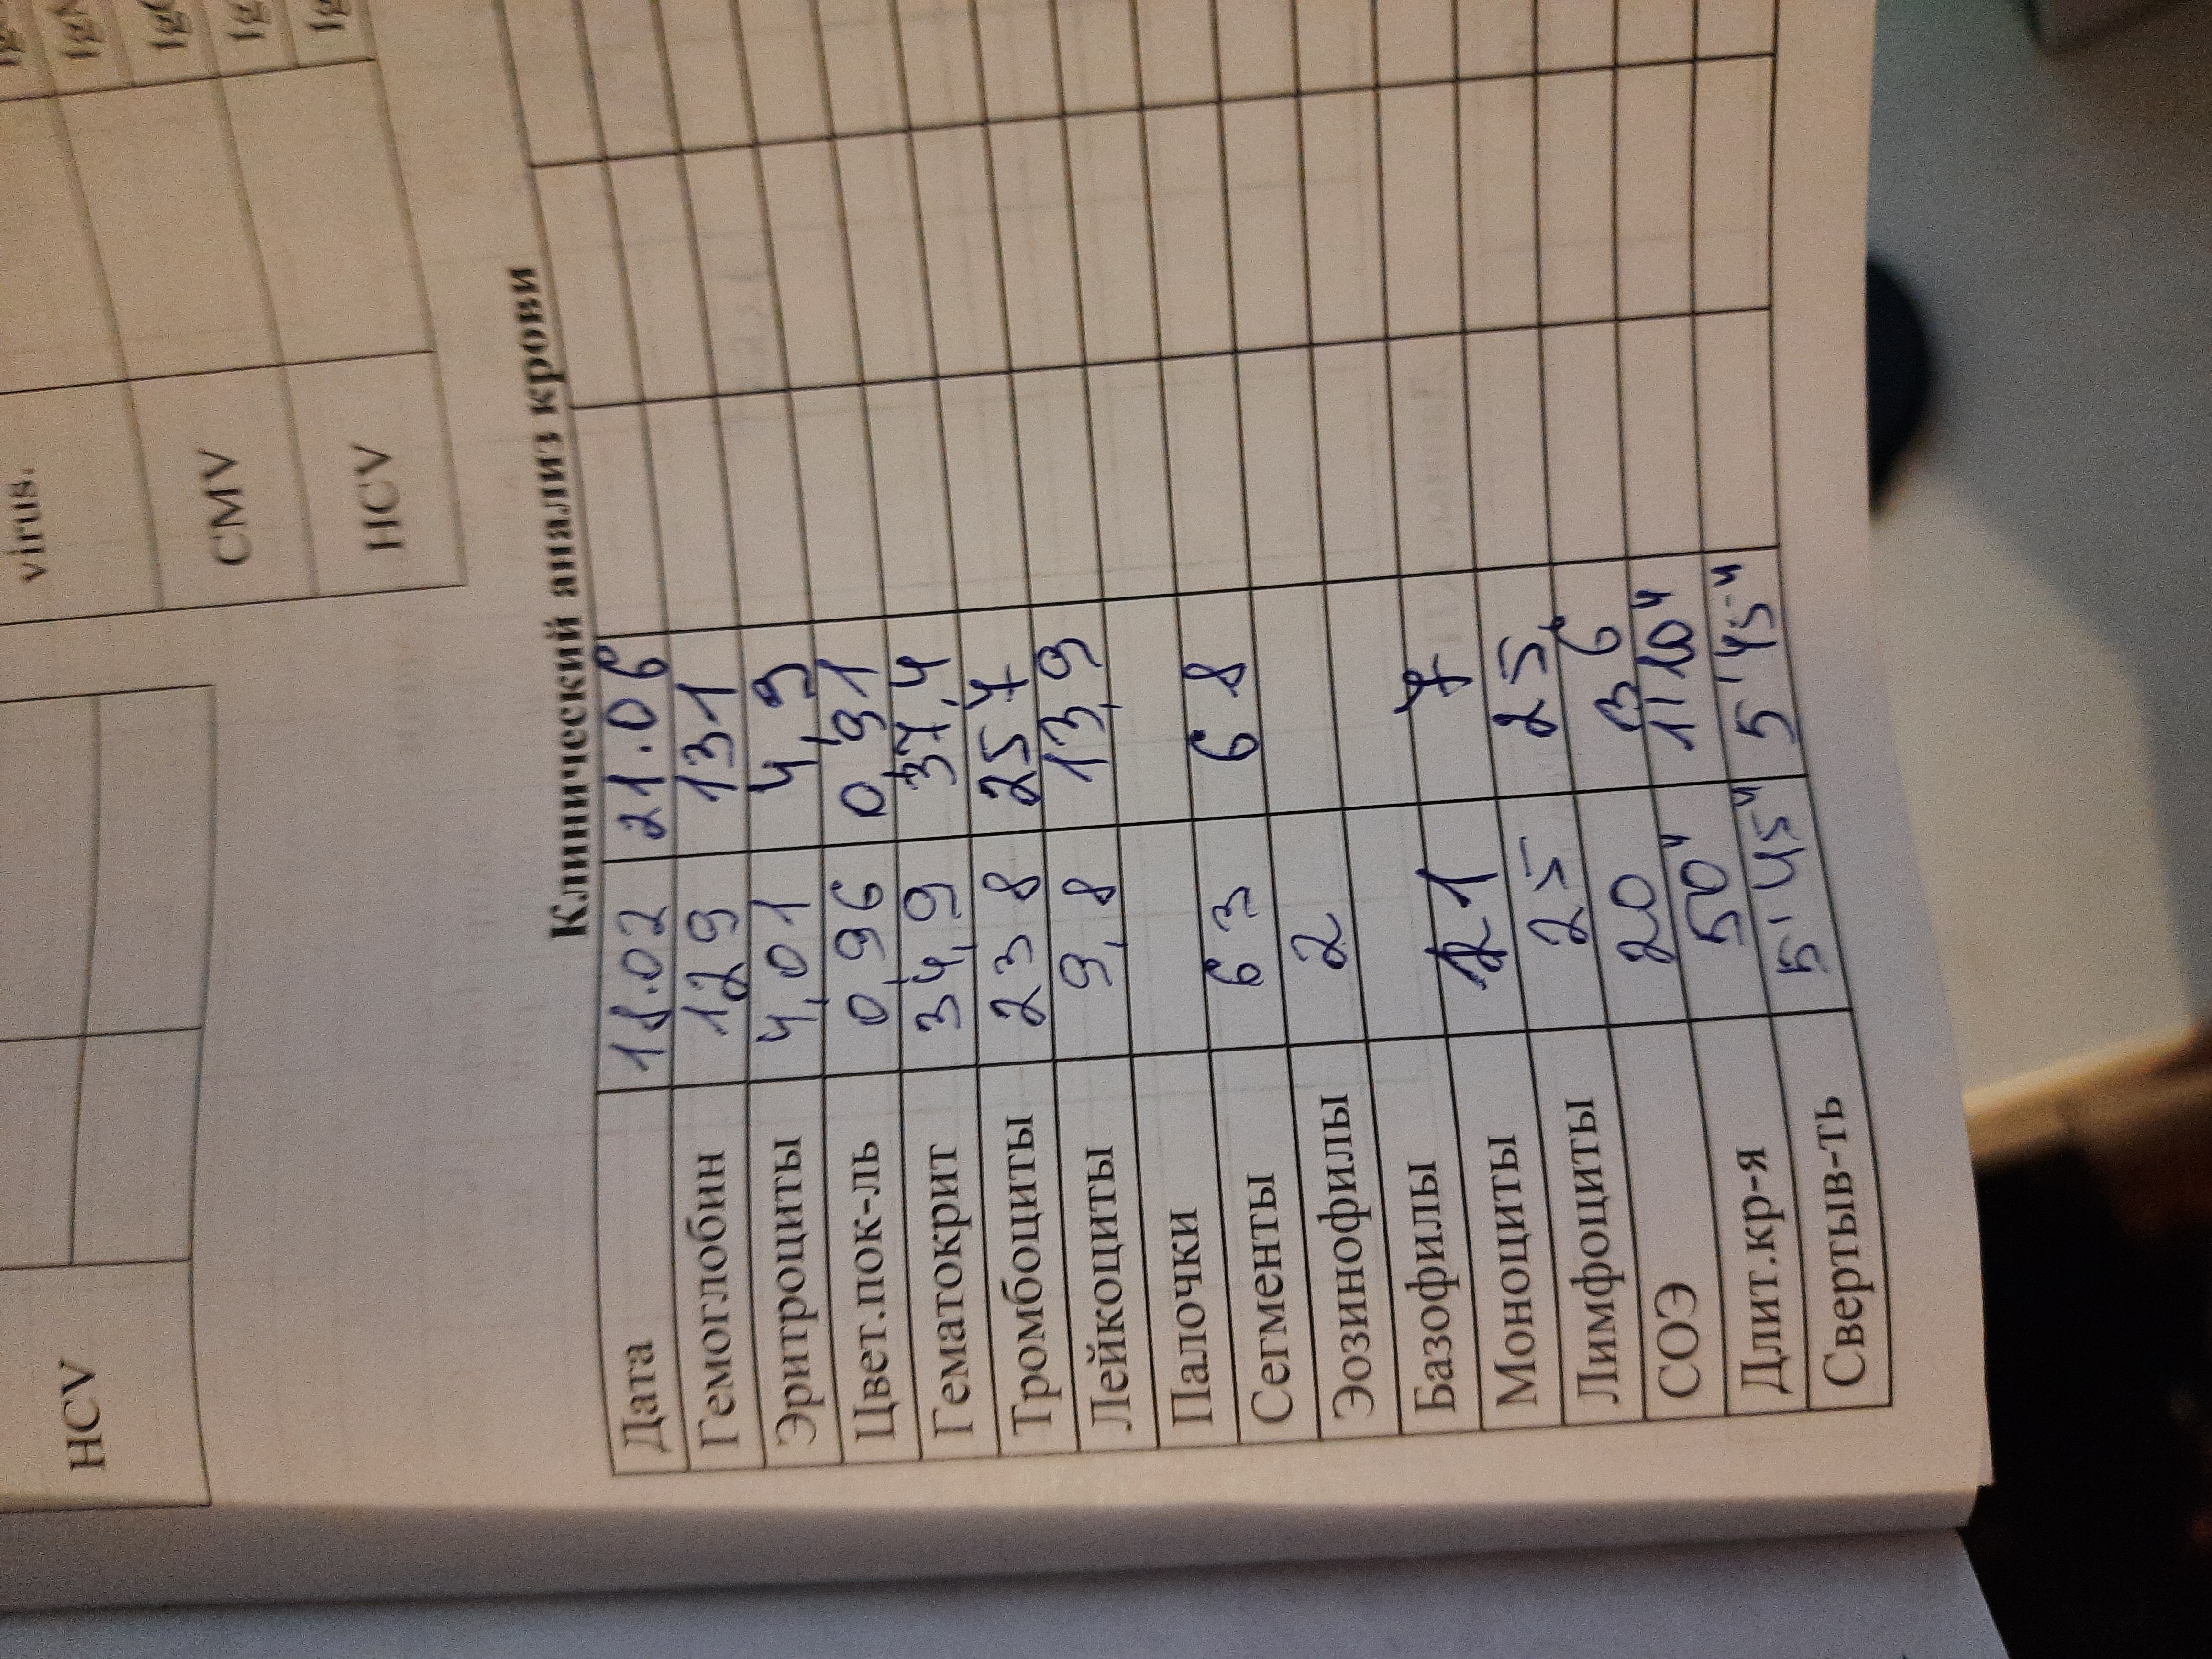 virus.
CMV
HCV
IgM
IgG
HCV
Клинический анализ крови
Дата 18.02 21.06
Гемоглобин 129 131
Эритроциты 4,01 4,3
Цвет.пок-ль 0,96 0,91
Гематокрит 34,9 37,4
Тромбоциты 238 257
Лейкоциты 9,8 13,9
Палочки
Сегменты 63 68
Эозинофилы 2
Базофилы
Моноциты 7
Лимфоциты 25 25
СОЭ 20 36
Длит.кр-я 50" 1'10"
Свертыв-ть 5'45" 5'45"